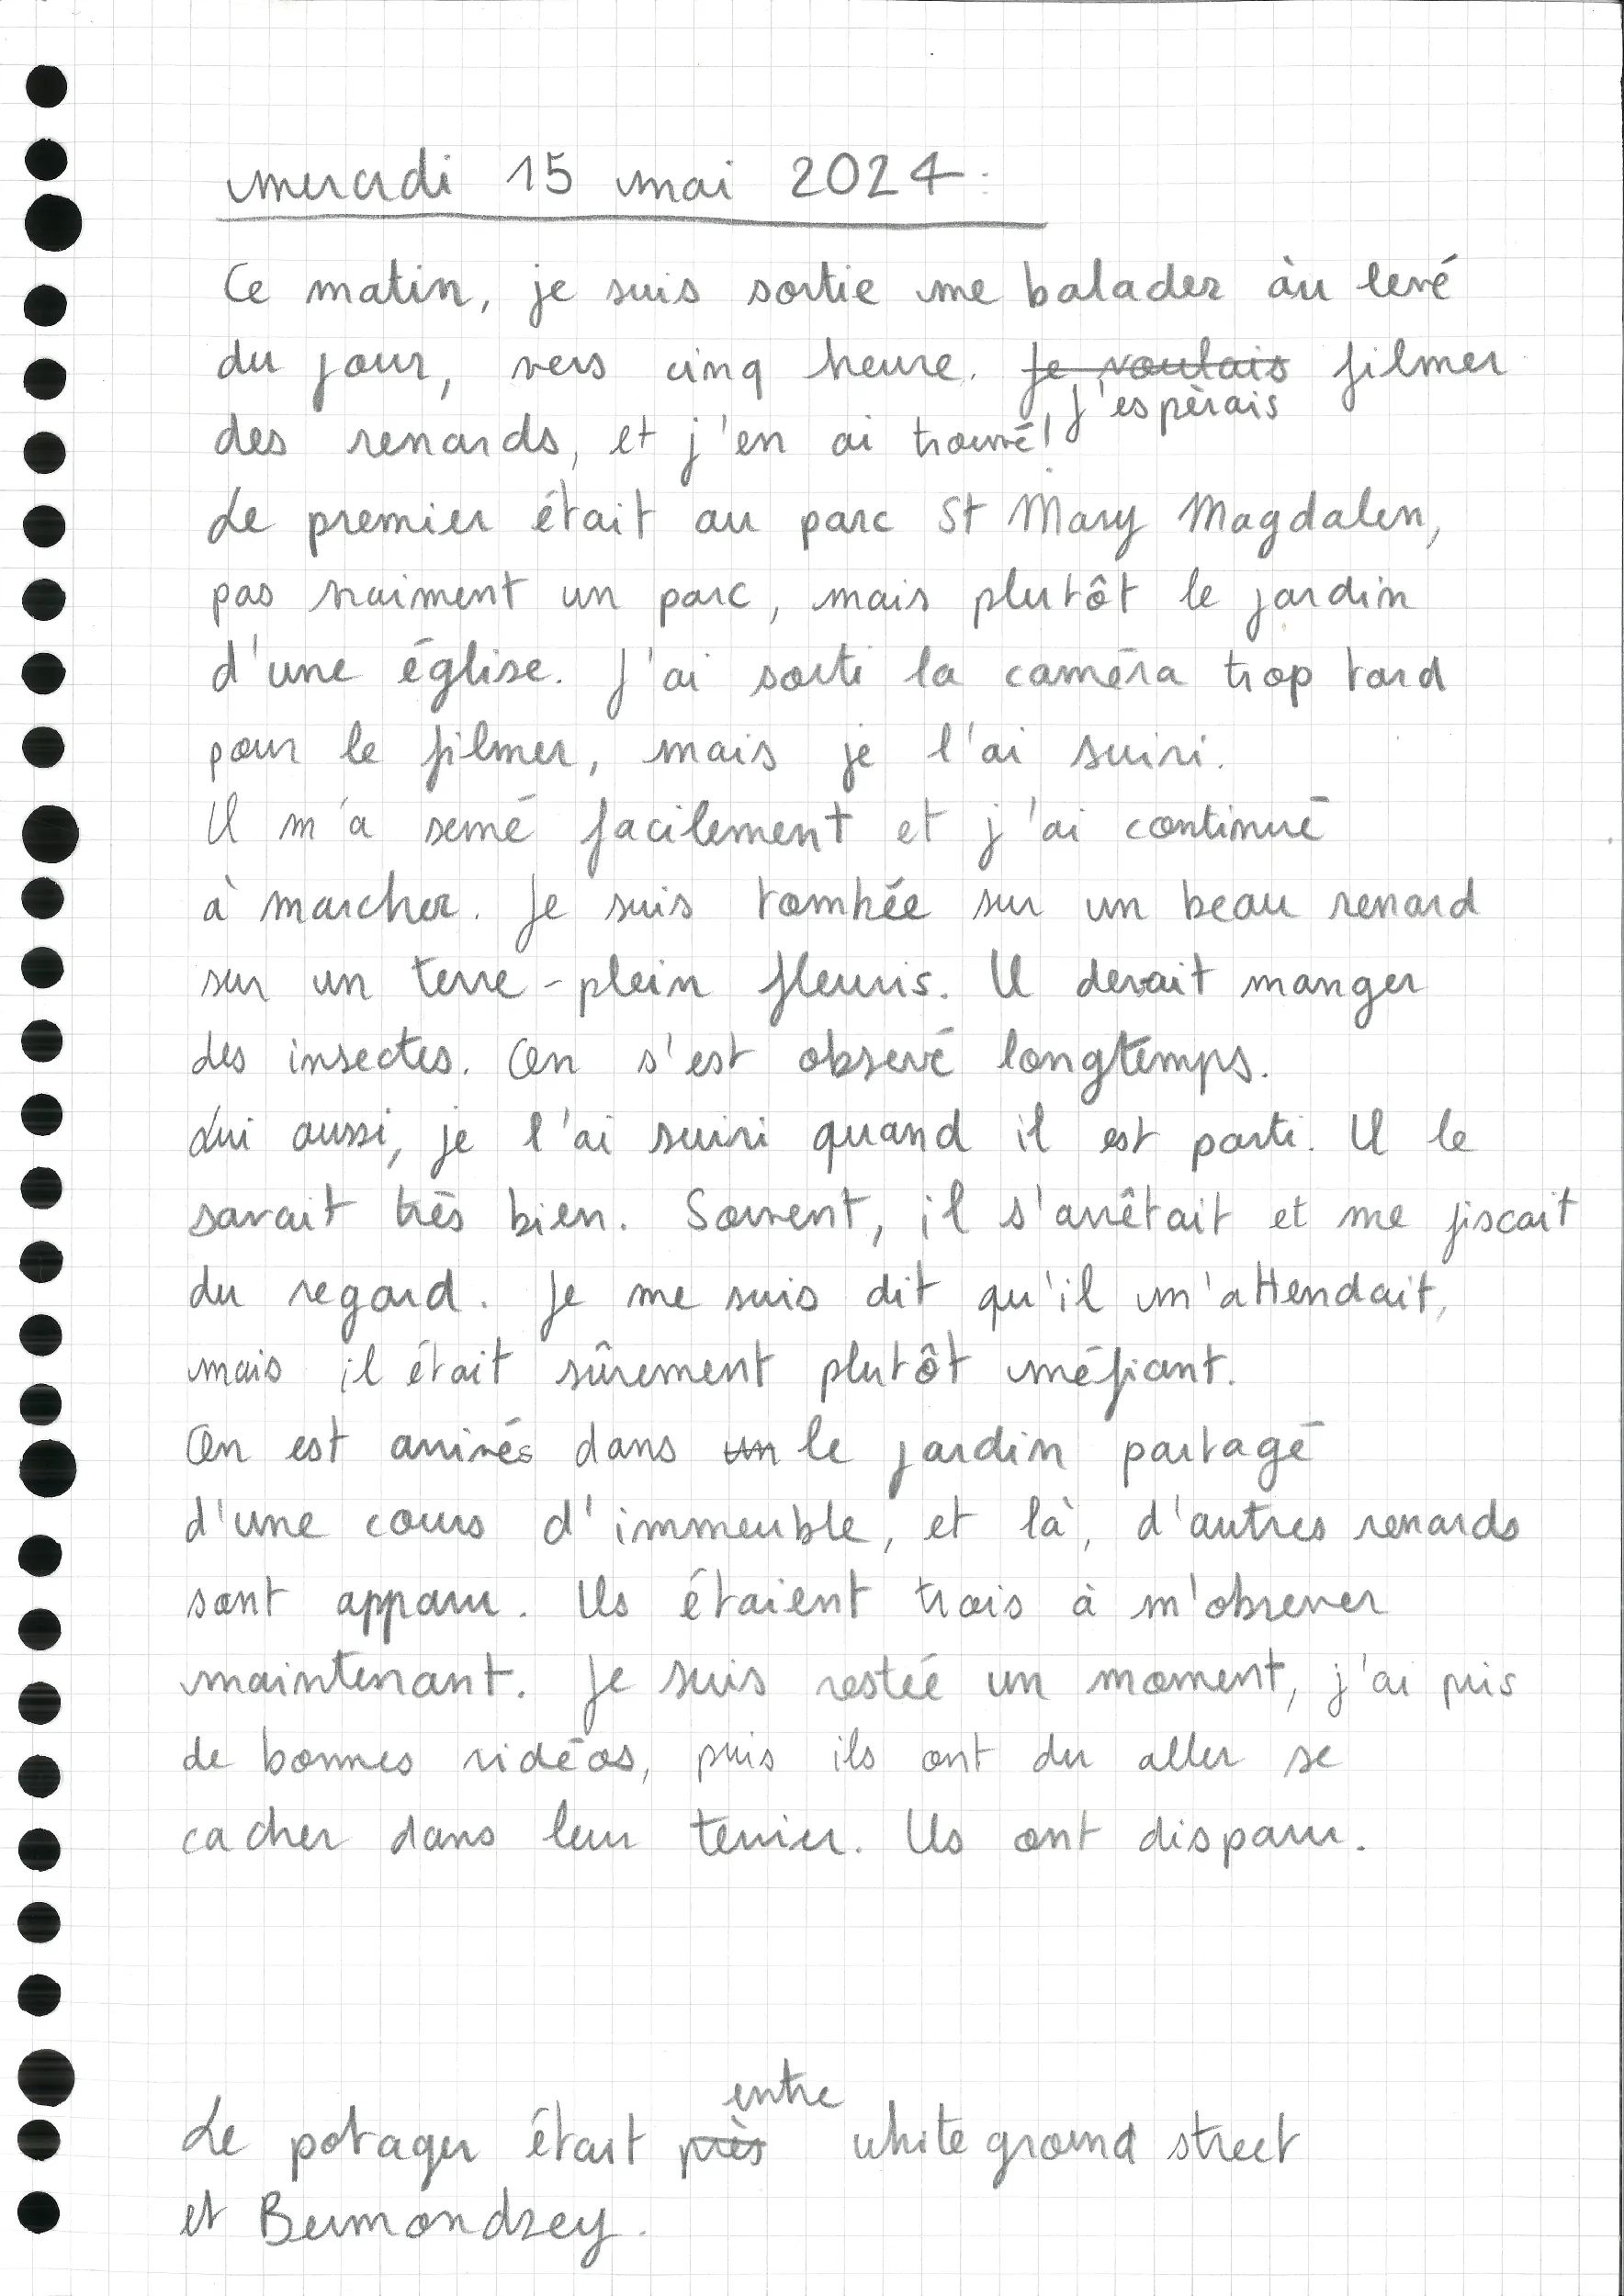 mercredi 15 mai 2024:
Ce matin, je suis sortie me balader àu levé
du jour, vers cinq heure. Je voulais filmer
j'espèrais
des renards, et j'en ai trouvé!
Le premier était au parc St Mary Magdalen,
pas vraiment un parc, mais plutôt le jardin
d'une église. J'ai sorti la caméra trop tard
pour le filmer, mais je l'ai suivi.
Il m'a semé facilement et j'ai continué
à marcher. Je suis tombée sur un beau renard
sur un terre-plein fleuris. Il devait manger
des insectes. On s'est observé longtemps.
Lui aussi, je l'ai suivi quand il est parti. Il le
savait très bien. Souvent, il s'arrêtait et me fiscait
du regard. Je me suis dit qu'il m'attendait,
mais il était sûrement plutôt méfiant.
On est arrivés dans un le jardin partagé
d'une cours d'immeuble, et là, d'autres renards
sont apparu. Ils étaient trois à m'observer
maintenant. Je suis restée un moment, j'ai pris
de bonnes vidéos, puis ils ont du aller se
cacher dans leur terrier. Ils ont disparu.
entre
Le potager était près white ground street
et Bermondsey.